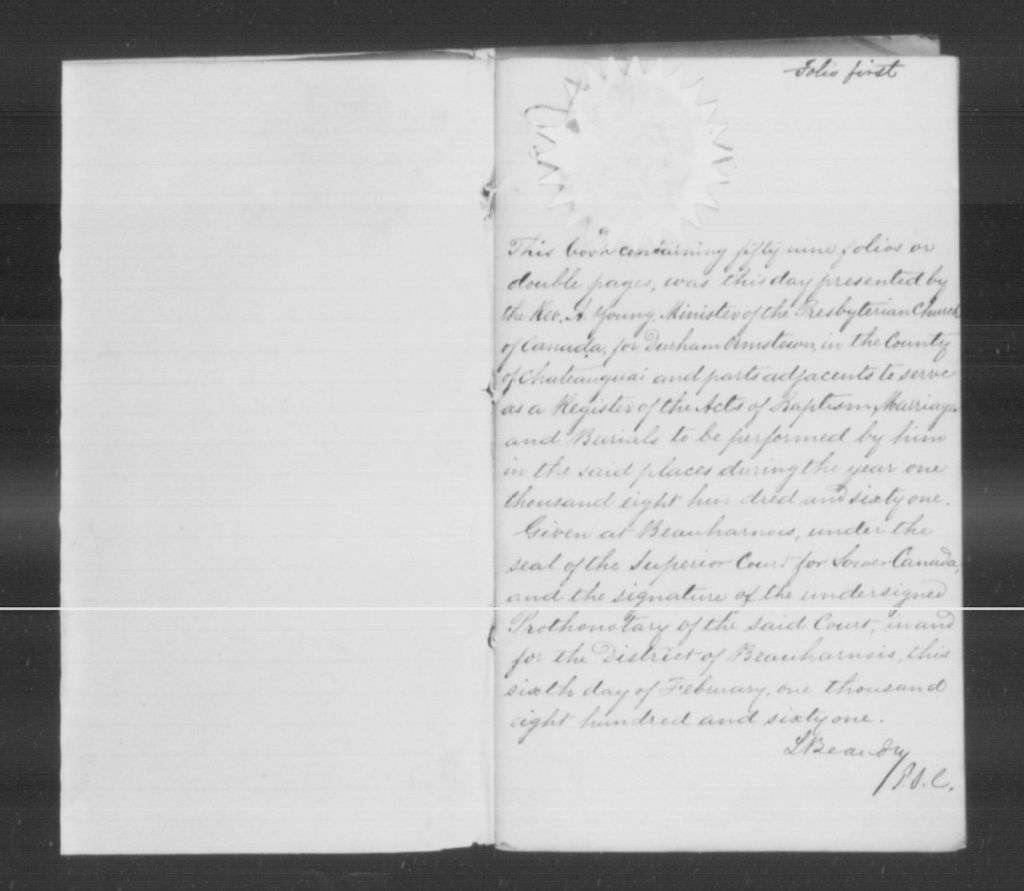 Folio first
This book containing fifty nine folios or
double pages, was this day presented by
the Rev. A. Young Minister of the Presbyterian Church
of Canada, for Durham Ormstown, in the County
of Chateauguai and parts adjacents to serve
as a Register of the Acts of Baptism, Marriages
and Burials to be performed by him
in the said places during the year one
thousand eight hundred and sixty one.
Given at Beauharnois, under the
seal of the Superior Court for Lower Canada,
and the signature of the undersigned
Prothonotary of the said Court, in and
for the District of Beauharnois, this
sixth day of February, one thousand
eight hundred and sixty one.
L Beaudry
P.S.C.